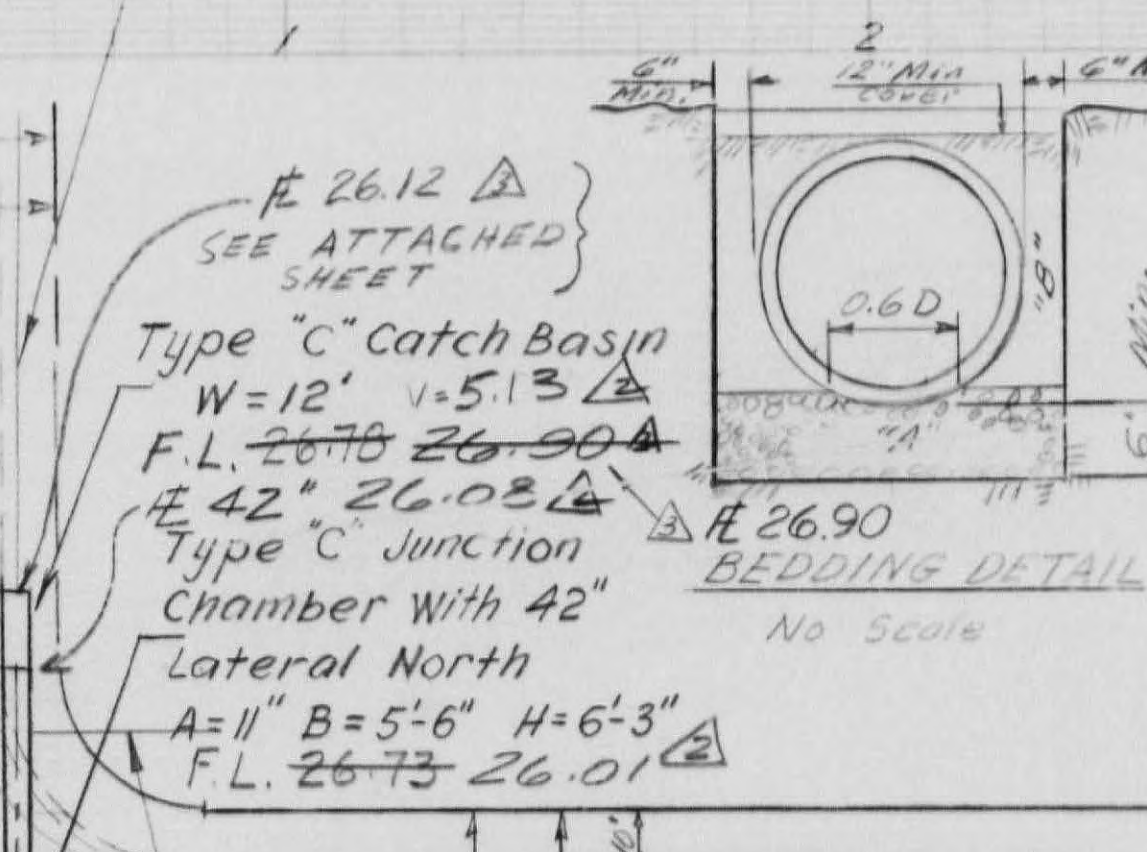 1
2
6" Min.
12" Min
cover
6"
FL 26.12 3
SEE ATTACHED
SHEET
Type "C" Catch Basin
W = 12' V = 5.13 2
F.L. 26.78 26.90
FL 42" 26.08 2
3 FL 26.90
Type "C" Junction
Chamber With 42"
Lateral North
A = 11" B = 5'-6" H = 6'-3"
F.L. 26.73 26.01 2
0.6 D
"B"
"A"
Min
6"
BEDDING DETAIL
No Scale
10'